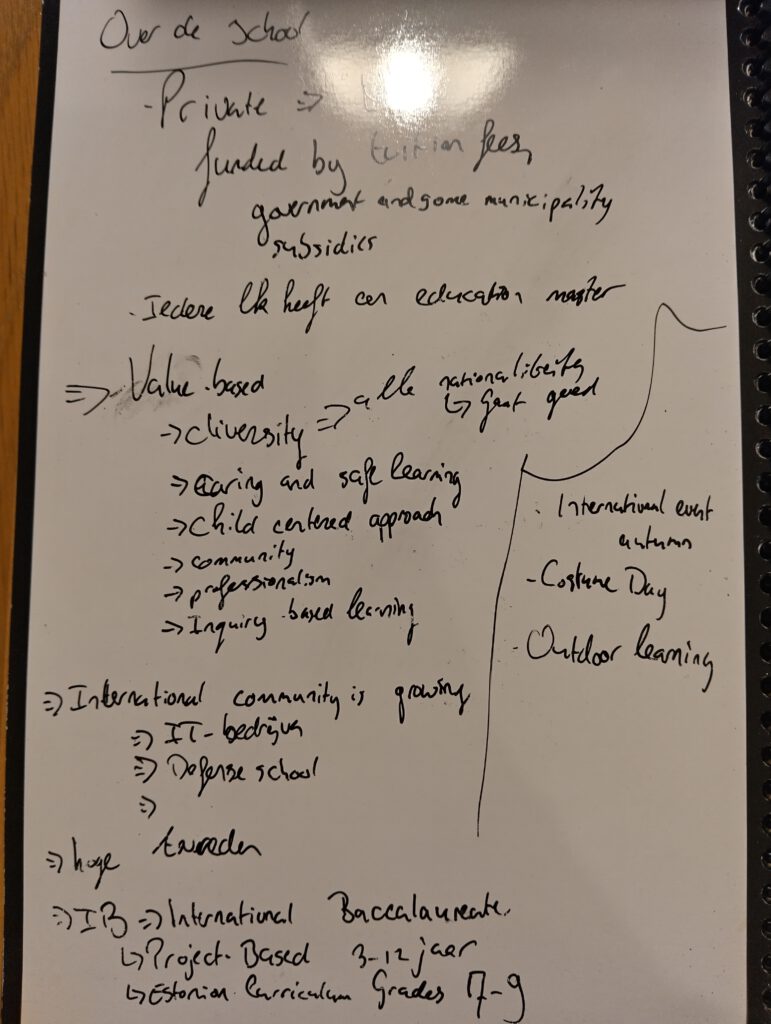 Over de school
- Private =>
funded by tuition fees,
government and some municipality
subsidies
. Iedere lk heeft een education master
=> Value-based
-> diversity => alle nationaliteiten
↳ Gaat goed
-> Caring and safe learning
-> Child centered approach
-> community
-> professionalism
-> Inquiry based learning
=> International community is growing
=> IT-bedrijven
=> Defense school
=>
=> hoge
=> IB => International Baccalaureate.
↳ Project-Based 3-12 jaar
↳ Estonian Curriculum Grades 7-9
. International event
autumn
- Costume Day
- Outdoor learning